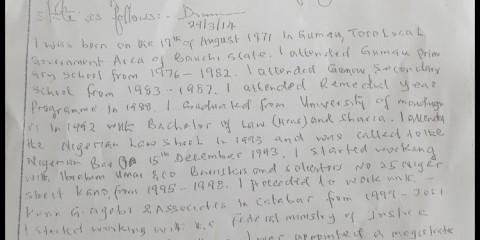 state as follows:-
24/3/14
I was born on the 17th of August 1971 in Gumau, Toro Local
Government Area of Bauchi State. I attended Gumau Prim
ary School from 1976 - 1982. I attended Secondary
School from 1983 - 1987. I attended Remedial Year
Programme in 1988. I graduated from University of Maidugu
ri in 1992 with Bachelor of Law (Hons) and Sharia. I attended
the Nigerian Law School in 1993 and was called to the
Nigerian Bar 15th December 1993. I started working
with Ibrahim Umar & Co Barristers and Solicitors No 25 Niger
Street Kano, from 1995 - 1998. I proceeded to work with
& Associates in Calabar from 1999 -
I started working with Federal Ministry of Justice
I was appointed a magistrate